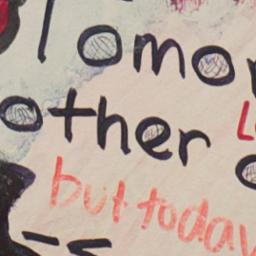 Tomor
other
but today